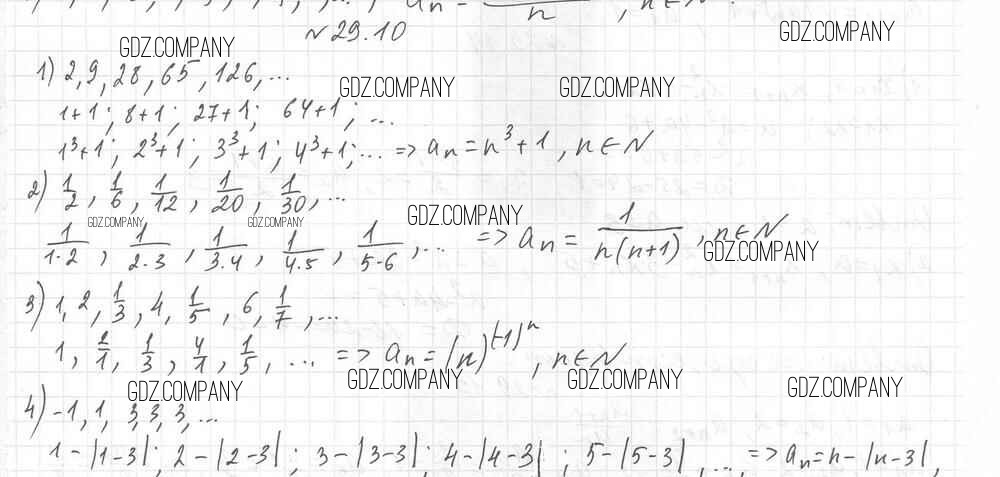 a_n = —/n, n∈N.
№29.10
GDZ.COMPANY GDZ.COMPANY
1) 2, 9, 28, 65, 126, ...
GDZ.COMPANY GDZ.COMPANY
1+1; 8+1; 27+1; 64+1; ...
1³+1; 2³+1; 3³+1; 4³+1; ... => a_n = n³+1, n∈N
2) 1/2, 1/6, 1/12, 1/20, 1/30, ...
GDZ.COMPANY GDZ.COMPANY GDZ.COMPANY
1/(1·2), 1/(2·3), 1/(3·4), 1/(4·5), 1/(5·6), ... => a_n = 1/(n(n+1)), n∈N
GDZ.COMPANY
3) 1, 2, 1/3, 4, 1/5, 6, 1/7, ...
1, 2/1, 1/3, 4/1, 1/5, ... => a_n = (n)^(-1)^n, n∈N
GDZ.COMPANY GDZ.COMPANY GDZ.COMPANY GDZ.COMPANY
4) -1, 1, 3, 3, 3, ...
1-|1-3|; 2-|2-3|; 3-|3-3|; 4-|4-3|; 5-|5-3|, ... => a_n = n-|n-3|,